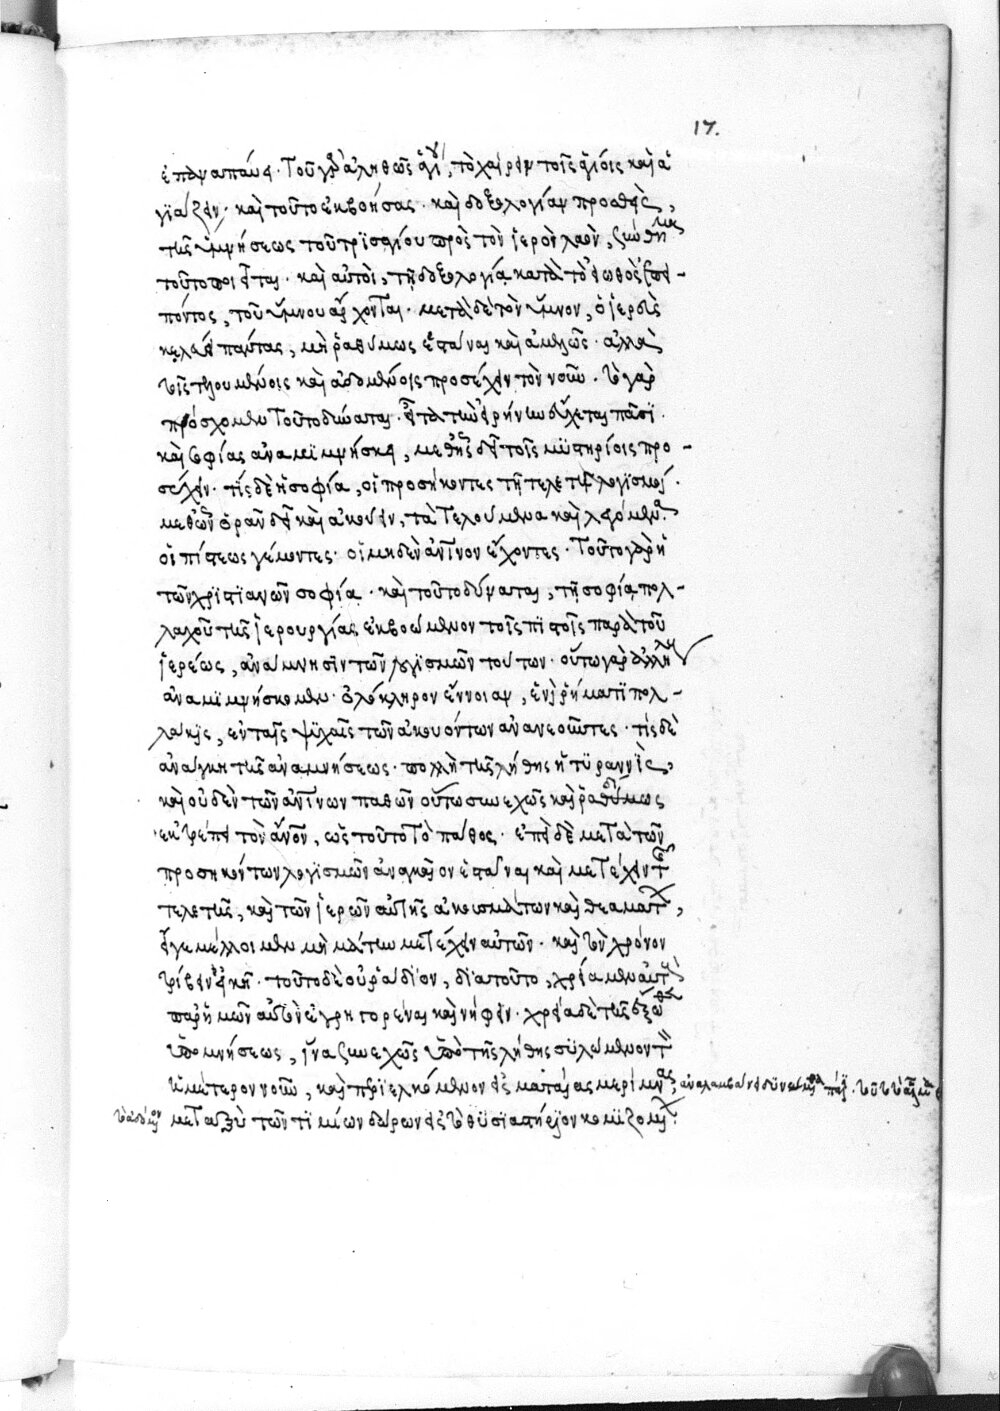 17.
ἐπαναπαύει. τοῦ γὰρ ἀληθῶς ἁγίου, τὸ χαίρειν τοῖς ἁγίοις καὶ ἁ
γιάζειν. καὶ τοῦτο ἐκβοήσας. καὶ δοξολογίαν προσθεὶς,
τῆς ὑμνήσεως τοῦ τρισαγίου πρὸς τὸν ἱερὸν λαὸν,
τοῦτο ποιεῖται. καὶ αὐτοὶ, τῇ δοξολογίᾳ κατὰ τὸ εἰωθὸς ἐπει-
πόντος, τοῦ ὕμνου ἄρχονται. μετὰ δὲ τὸν ὕμνον, ὁ ἱερεὺς
κελεύει πάντας, μὴ ῥαθύμως ἑστάναι καὶ ἀμελῶς. ἀλλὰ
τοῖς τελουμένοις καὶ ἀδομένοις προσέχειν τὸν νοῦν. τὸ γὰρ
πρόσχωμεν τοῦτο δύναται. εἶτα τὴν εἰρήνην εὔχεται πᾶσι.
καὶ σοφίας ἀναμιμνήσκει, μεθ' ἧς δεῖ τοῖς μυστηρίοις προ-
σέχειν. τίς δὲ ἡ σοφία, οἱ προσήκοντες τῇ τελετῇ λογισμοί.
μεθ' ὧν ὁρᾶν δεῖ καὶ ἀκούειν, τὰ τελούμενα καὶ λεγόμενα.
οἱ πίστεως γέμοντες. οἱ μηδὲν ἀνθρώπινον ἔχοντες. τοῦτο γὰρ ἡ
τῶν χριστιανῶν σοφία. καὶ τοῦτο δύναται, τῇ σοφίᾳ πολ-
λαχοῦ τῆς ἱερουργίας ἐκβοώμενον τοῖς πιστοῖς παρὰ τοῦ
ἱερέως, ἀνάμνησιν τῶν λογισμῶν τούτων. οὕτω γὰρ ἀλλήλους
ἀναμιμνήσκομεν. ὁλόκληρον ἔννοιαν, ἑνὶ ῥήματι πολ-
λάκις, ἐν ταῖς ψυχαῖς τῶν ἀκουόντων ἀνανεοῦντες. τίς δὲ
ἀνάγκη τῆς ἀναμνήσεως. πολλὴ τῆς λήθης ἡ τυραννὶς,
καὶ οὐδὲν τῶν ἀνθρωπίνων παθῶν οὕτω συνεχῶς καὶ ῥαθύμως
ἐκτρέπει τὸν ἄνθρωπον, ὡς τοῦτο τὸ πάθος. ἐπεὶ δὲ μετὰ τῶν
προσηκόντων λογισμῶν ἀναγκαῖον ἑστάναι καὶ μετέχειν τῆς
τελετῆς, καὶ τῶν ἱερῶν αὐτῆς ἀκουσμάτων καὶ θεαμάτων,
εἴγε μέλλοιμεν μὴ μάτην μετέχειν αὐτῶν. καὶ τὸν χρόνον
τρίβειν εἰκῆ. τοῦτο δὲ οὐ ῥάδιον, διὰ τοῦτο, χρεία μὲν
παρ' ἡμῶν αὐτῶν ἐγρηγορέναι καὶ νήφειν. χρεία δὲ τῆς ἔξωθεν
ὑπομνήσεως, ἵνα συνεχῶς ὑπὸ τῆς λήθης συλώμενον τὸν
ἡμέτερον νοῦν, καὶ περιελκόμενον εἰς ματαίας μερίμνας, ἀναλαμβάνειν δυνώμεθα
μεταξὺ τῶν τιμίων δώρων εἰς τὸ θυσιαστήριον κομιζομένων.